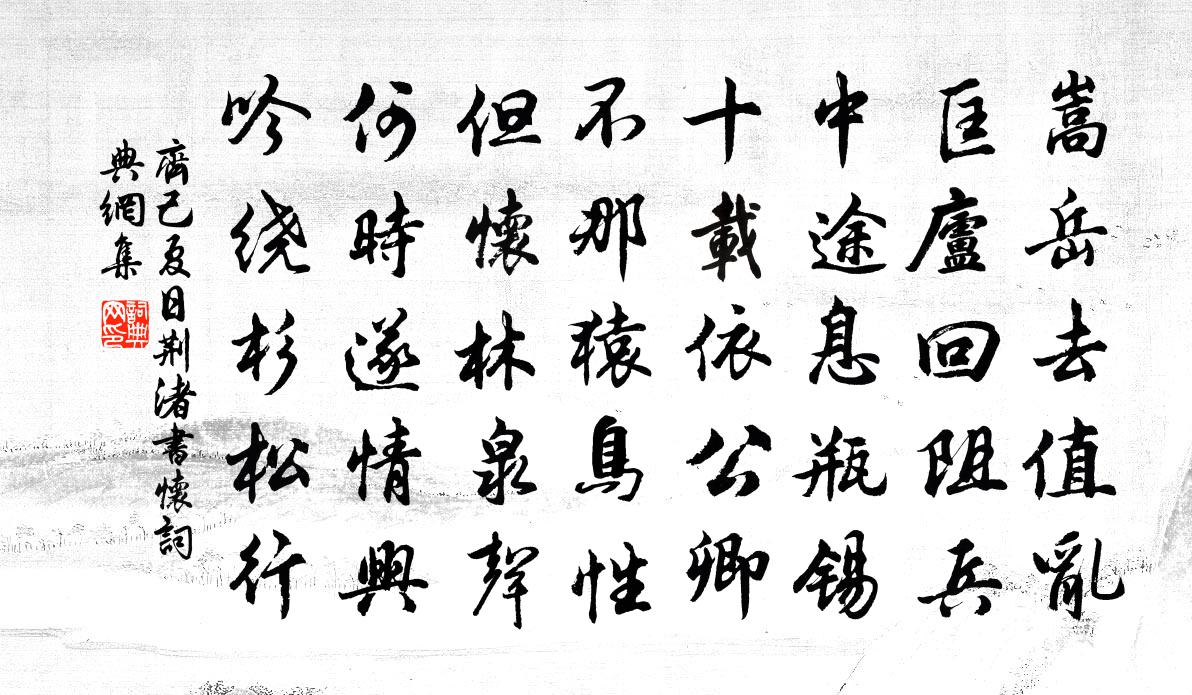 嵩岳去值亂
匡廬回阻兵
中途息瓶錫
十載依公卿
不那猿鳥性
但懷林泉聲
何時遂情興
吟绕杉松行
齊己夏日荆渚書懷詞
典網集
詞典
网印